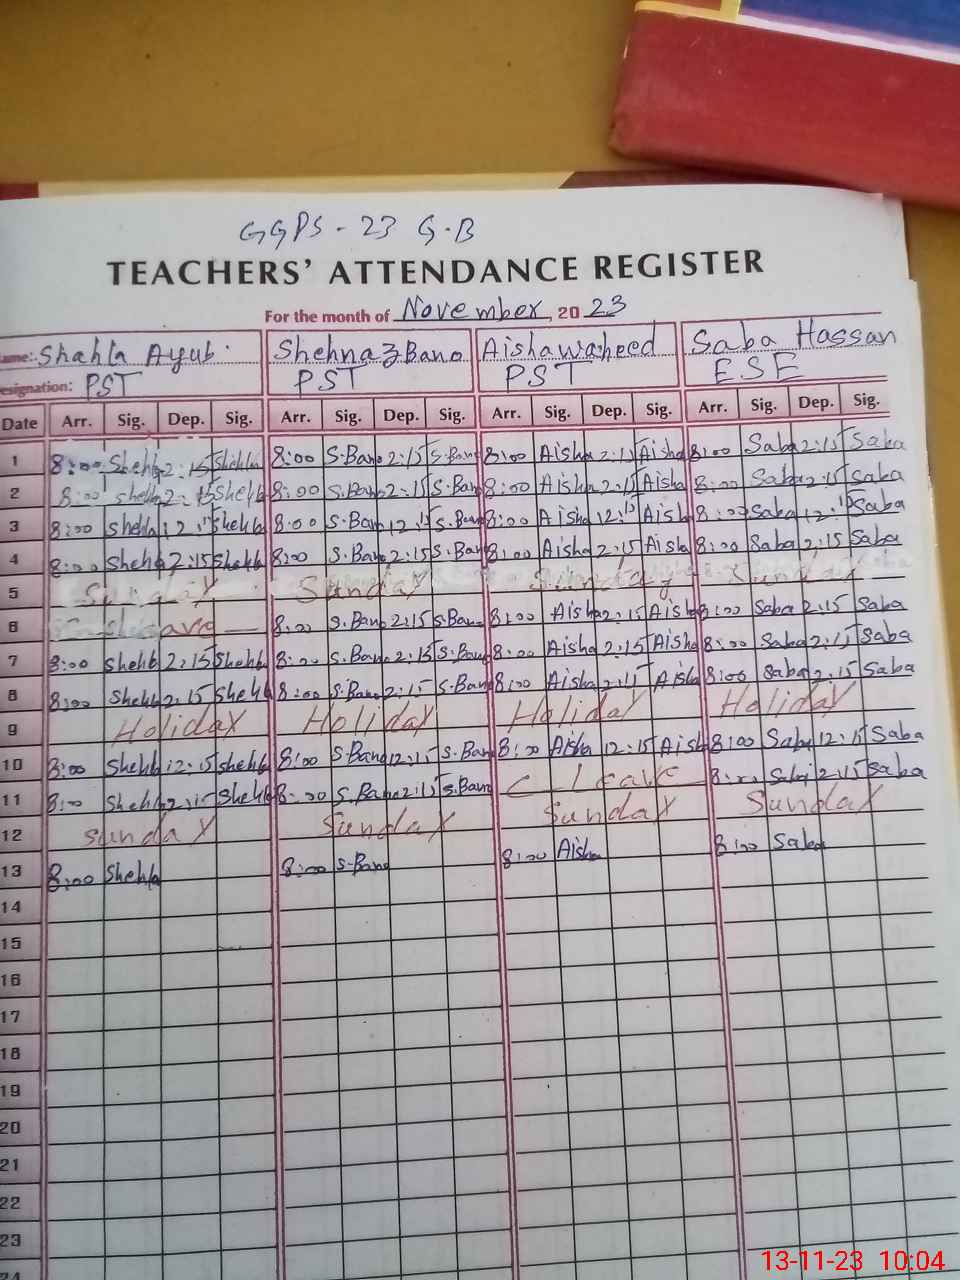 GGPS - 23 G.B
TEACHERS' ATTENDANCE REGISTER
For the month of November, 2023
ame: Shahla Ayub. Shehnaz Bano Aisha waheed Saba Hassan
esignation: PST PST PST ESE
Date Arr. Sig. Dep. Sig. Arr. Sig. Dep. Sig. Arr. Sig. Dep. Sig. Arr. Sig. Dep. Sig.
1 8:00 Shehla 2:15 Shehla 8:00 S.Bano 2:15 S.Bano 8:00 Aisha 2:15 Aisha 8:00 Saba 2:15 Saba
2 8:00 Shehla 2:15 Shehla 8:00 S.Bano 2:15 S.Bano 8:00 Aisha 2:15 Aisha 8:00 Saba 2:15 Saba
3 8:00 Shehla 12:15 Shehla 8:00 S.Bano 12:15 S.Bano 8:00 Aisha 12:15 Aisha 8:00 Saba 12:15 Saba
4 8:00 Shehla 2:15 Shehla 8:00 S.Bano 2:15 S.Bano 8:00 Aisha 2:15 Aisha 8:00 Saba 2:15 Saba
5 Sunday Sunday Sunday Sunday
6 8:00 S.Bano 2:15 S.Bano 8:00 Aisha 2:15 Aisha 8:00 Saba 2:15 Saba
7 8:00 Shehla 2:15 Shehla 8:00 S.Bano 2:15 S.Bano 8:00 Aisha 2:15 Aisha 8:00 Saba 2:15 Saba
8 8:00 Shehla 2:15 Shehla 8:00 S.Bano 2:15 S.Bano 8:00 Aisha 2:15 Aisha 8:00 Saba 2:15 Saba
9 Holiday Holiday Holiday Holiday
10 8:00 Shehla 12:15 Shehla 8:00 S.Bano 12:15 S.Bano 8:00 Aisha 12:15 Aisha 8:00 Saba 12:15 Saba
11 8:00 Shehla 2:15 Shehla 8:00 S.Bano 2:15 S.Bano C Leave 8:00 Saba 2:15 Saba
12 Sunday Sunday Sunday Sunday
13 8:00 Shehla 8:00 S.Bano 8:00 Aisha 8:00 Saba
14
15
16
17
18
19
20
21
22
23
24
13-11-23 10:04